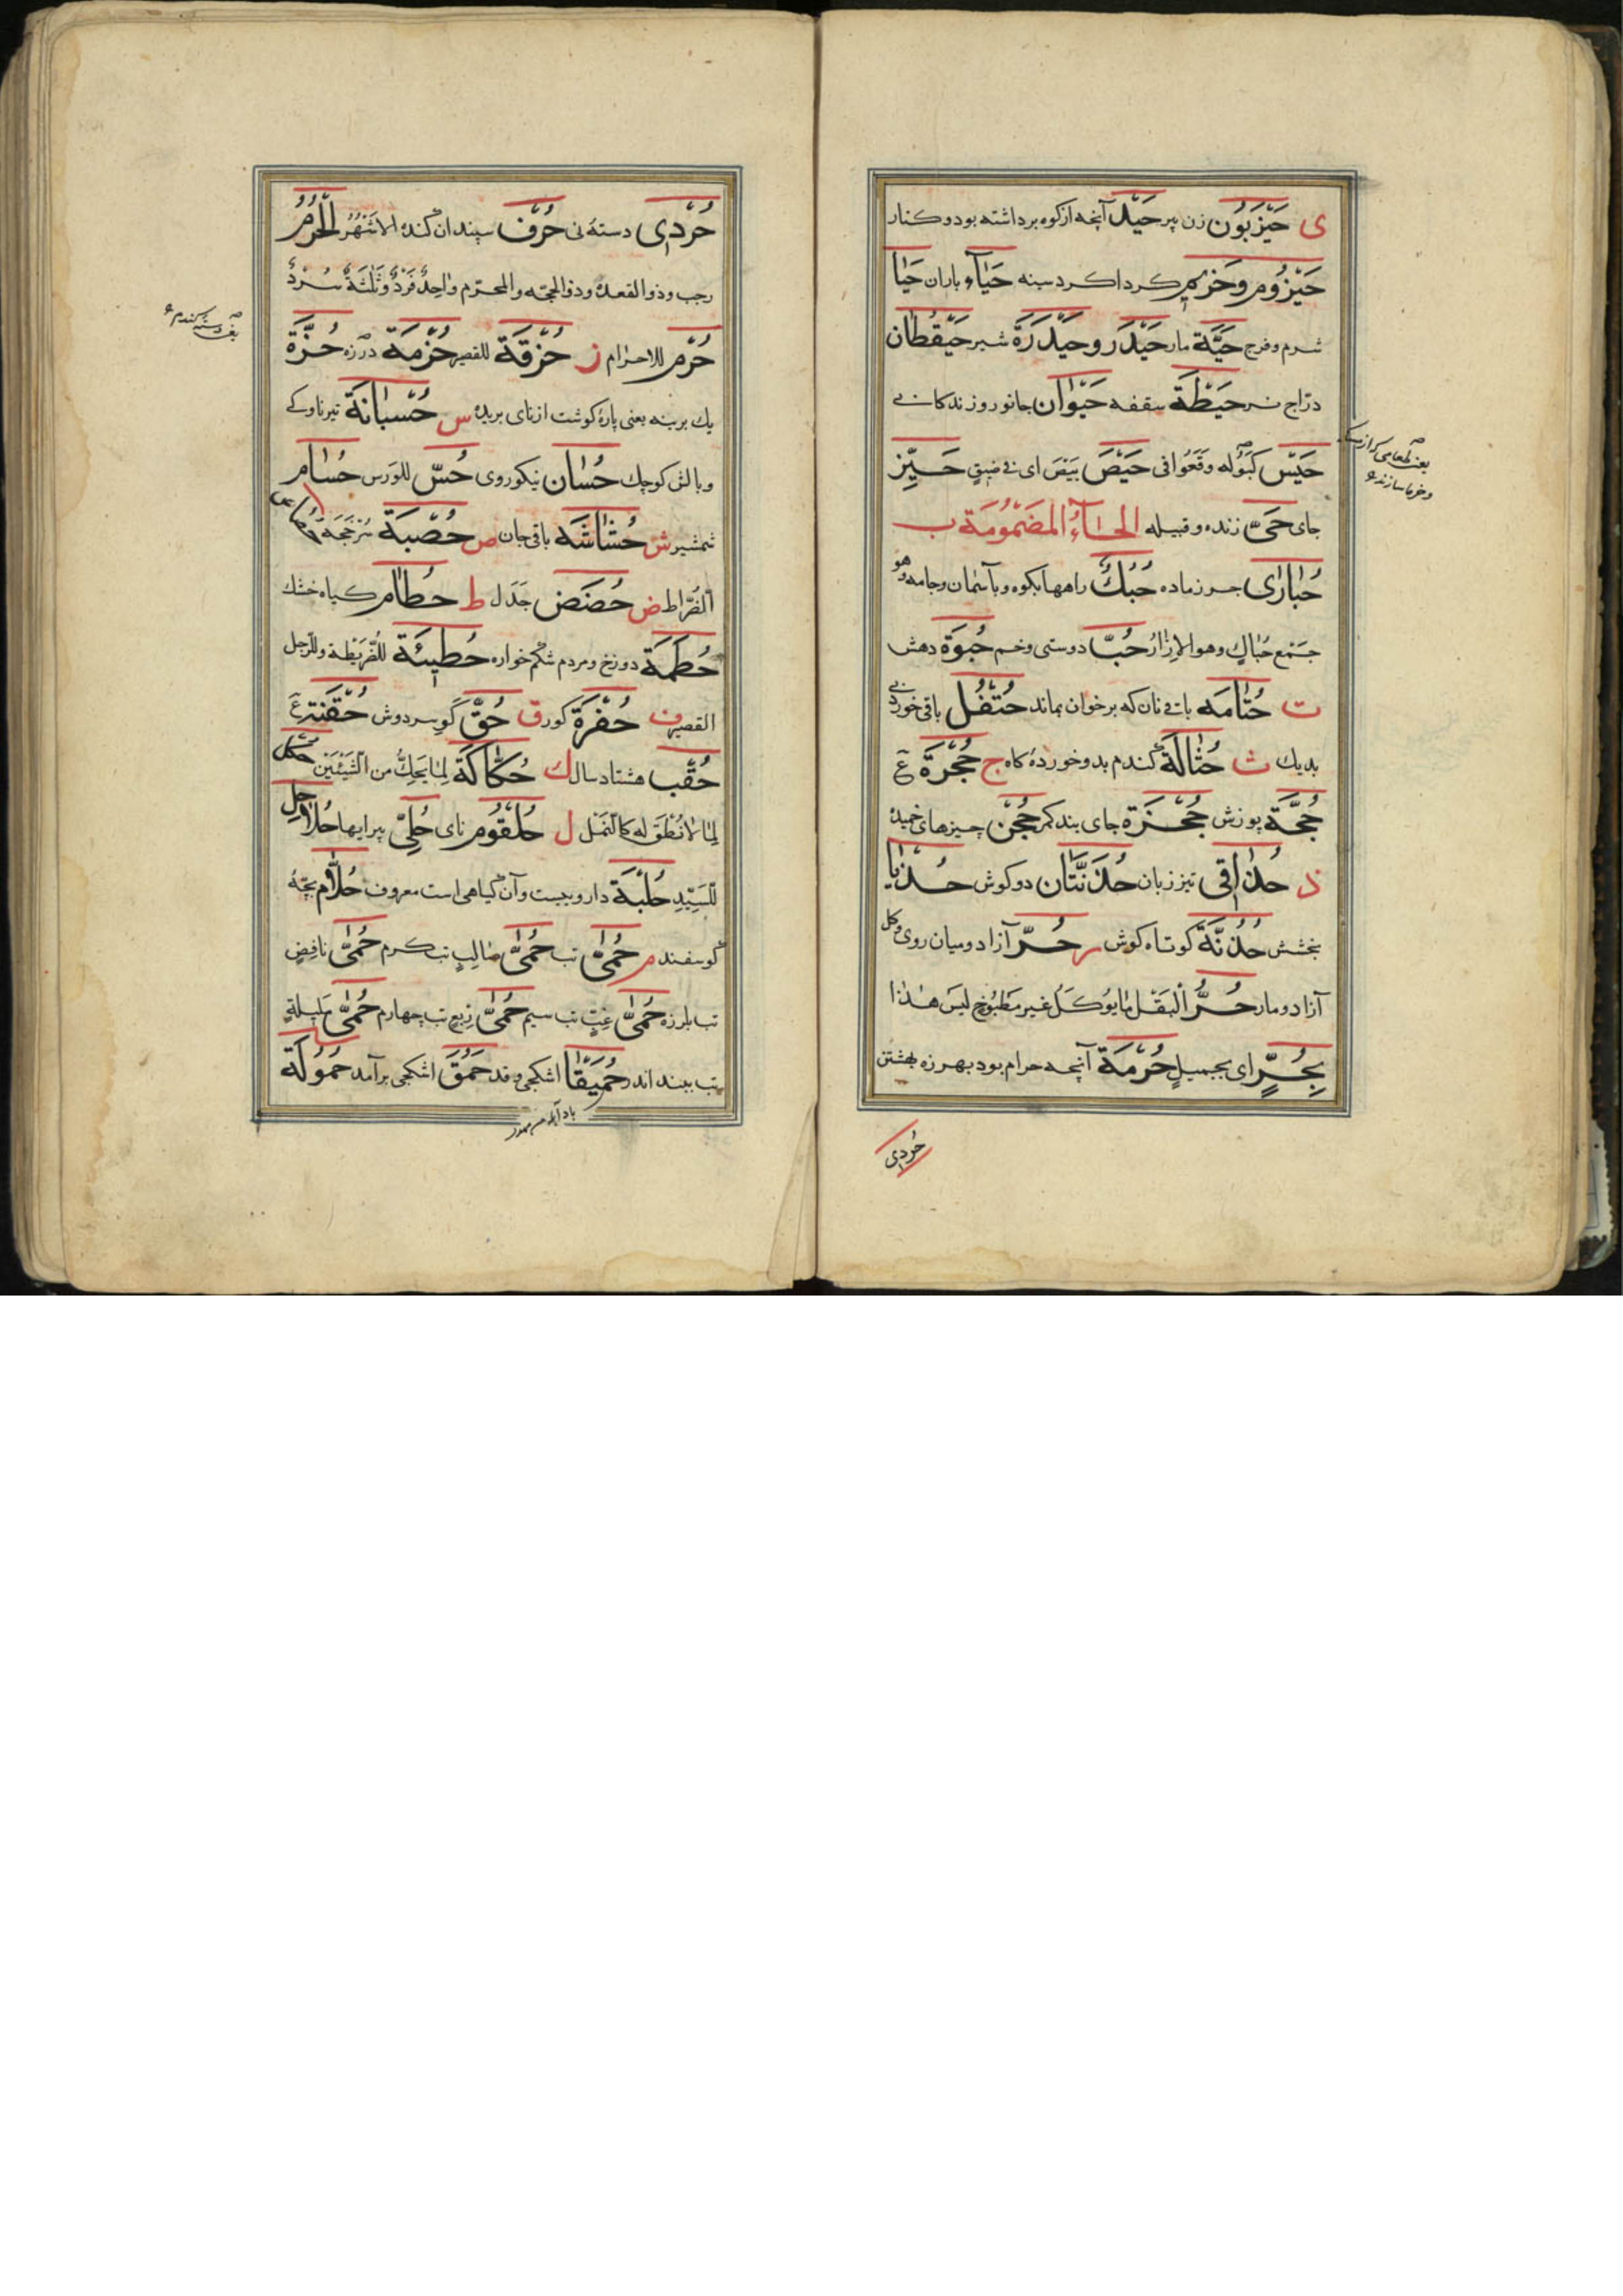 ی حَیْزَبُون زن پیر حَیْد آنچه از کوه برداشته بود و کنار
حَیْزُوم و حَزِیم کرداکرد سینه حَیَاء باران حَیَا
شرم و فرج حَیَّة مار حَیْدَر و حَیْدَرَة شیر حَیْقُطَان
درّاج نر حَیْطَة سقفه حَیْوَان جانور و زندکانی
حَیْس وقعوا فی حَیْصَ بَیْصَ ای فی ضیق حَیِّز
جای حَیّ زنده و قبیله الحاء المضمومة ب
حُبَارَی جرز ماده حُبُك راهها بکوه و بآسمان و جامه وهو
جمع حِبَاك وهو الازار حُبّ دوستی و خم حُبْوَة دهش
ت حُتَامَه باقی نان که بر خوان بماند حُتْفُل باقی خوردی
بدیك ث حُثَالَة کندم بد و خوردهٔ کاه ج حُجْرَة ع
حُجَّة پوزش حُجْزَة جای بند کمر حُجْن چیزهای خمیده
ذ حُذَاقِی تیز زبان حُذُنَّتَان دو کوش حُذْیَا
بخشش حُذُنَّة کوتاه کوش ر حُرّ آزاد و میان روی و کل
آزاد و مار حُرُّ الْبَقْل ما یوکل غیر مطبوخ لیس هذا
بِحُرٍّ ای بجمیل حُرْمَة آنچه حرام بود بهرزه بهشتن
حُردی
حُرْدِی دستهٔ نی حُرْف سپندان کنده الاشهر الْحُرُم
رجب و ذو القعدة و ذو الحجه و المحرم واحد فرد و ثلثة سرد
حُرْم للاحرام ز حُزُقَّة للقصیر حُزْمَة درزه حُزَّة
یك برینه یعنی پارهٔ کوشت از نای بریده س حُسْبَانَة تیر ناوکی
و بالش کوچك حُسَان نیکوروی حُسّ للورس حُسَام
شمشیر ش حُشَاشَه باقی جان ص حُصْبَة سرخجه
الضراط ض حُضَض جَدَل ط حُطَام کیاه خشك
حُطَمَة دوزخ و مردم شکم خواره حُطَیْئَة للضریطة و للرجل
القصیر ف حُفْرَة کور ق حُقّ کو سر دوش حُقْنَة ع
حُقْب هشتاد سال ك حُكَاكَة لما یحك من الشیئین حكل
لما لا نطق له کالنمل ل حُلْقُوم نای حُلِیّ پیرایها حُلَاحِل
للسید حُلْبَة داروییست و آن کیاهی است معروف حُلَّام بچهٔ
کوسفند م حُمَّی تب حُمَّی صالب تب کرم حُمَّی نافض
تب بلرزه حُمَّی غبّ تب سیم حُمَّی ربع تب چهارم حُمَّی ملیلة
تب ببند اندر حُمَیْقَا اشکجی و قد حَمُقَ اشکجی برآمد حُمُولَة